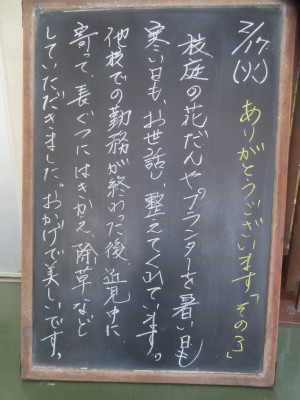 2/17(火)
ありがとうございます「その3」
校庭の花だんやプランターを暑い日も
寒い日も、お世話し、整えてくれています。
他校での勤務が終わった後、近見中に
寄って、長ぐつにはきかえ、除草など
していただきました。おかげで美しいです。